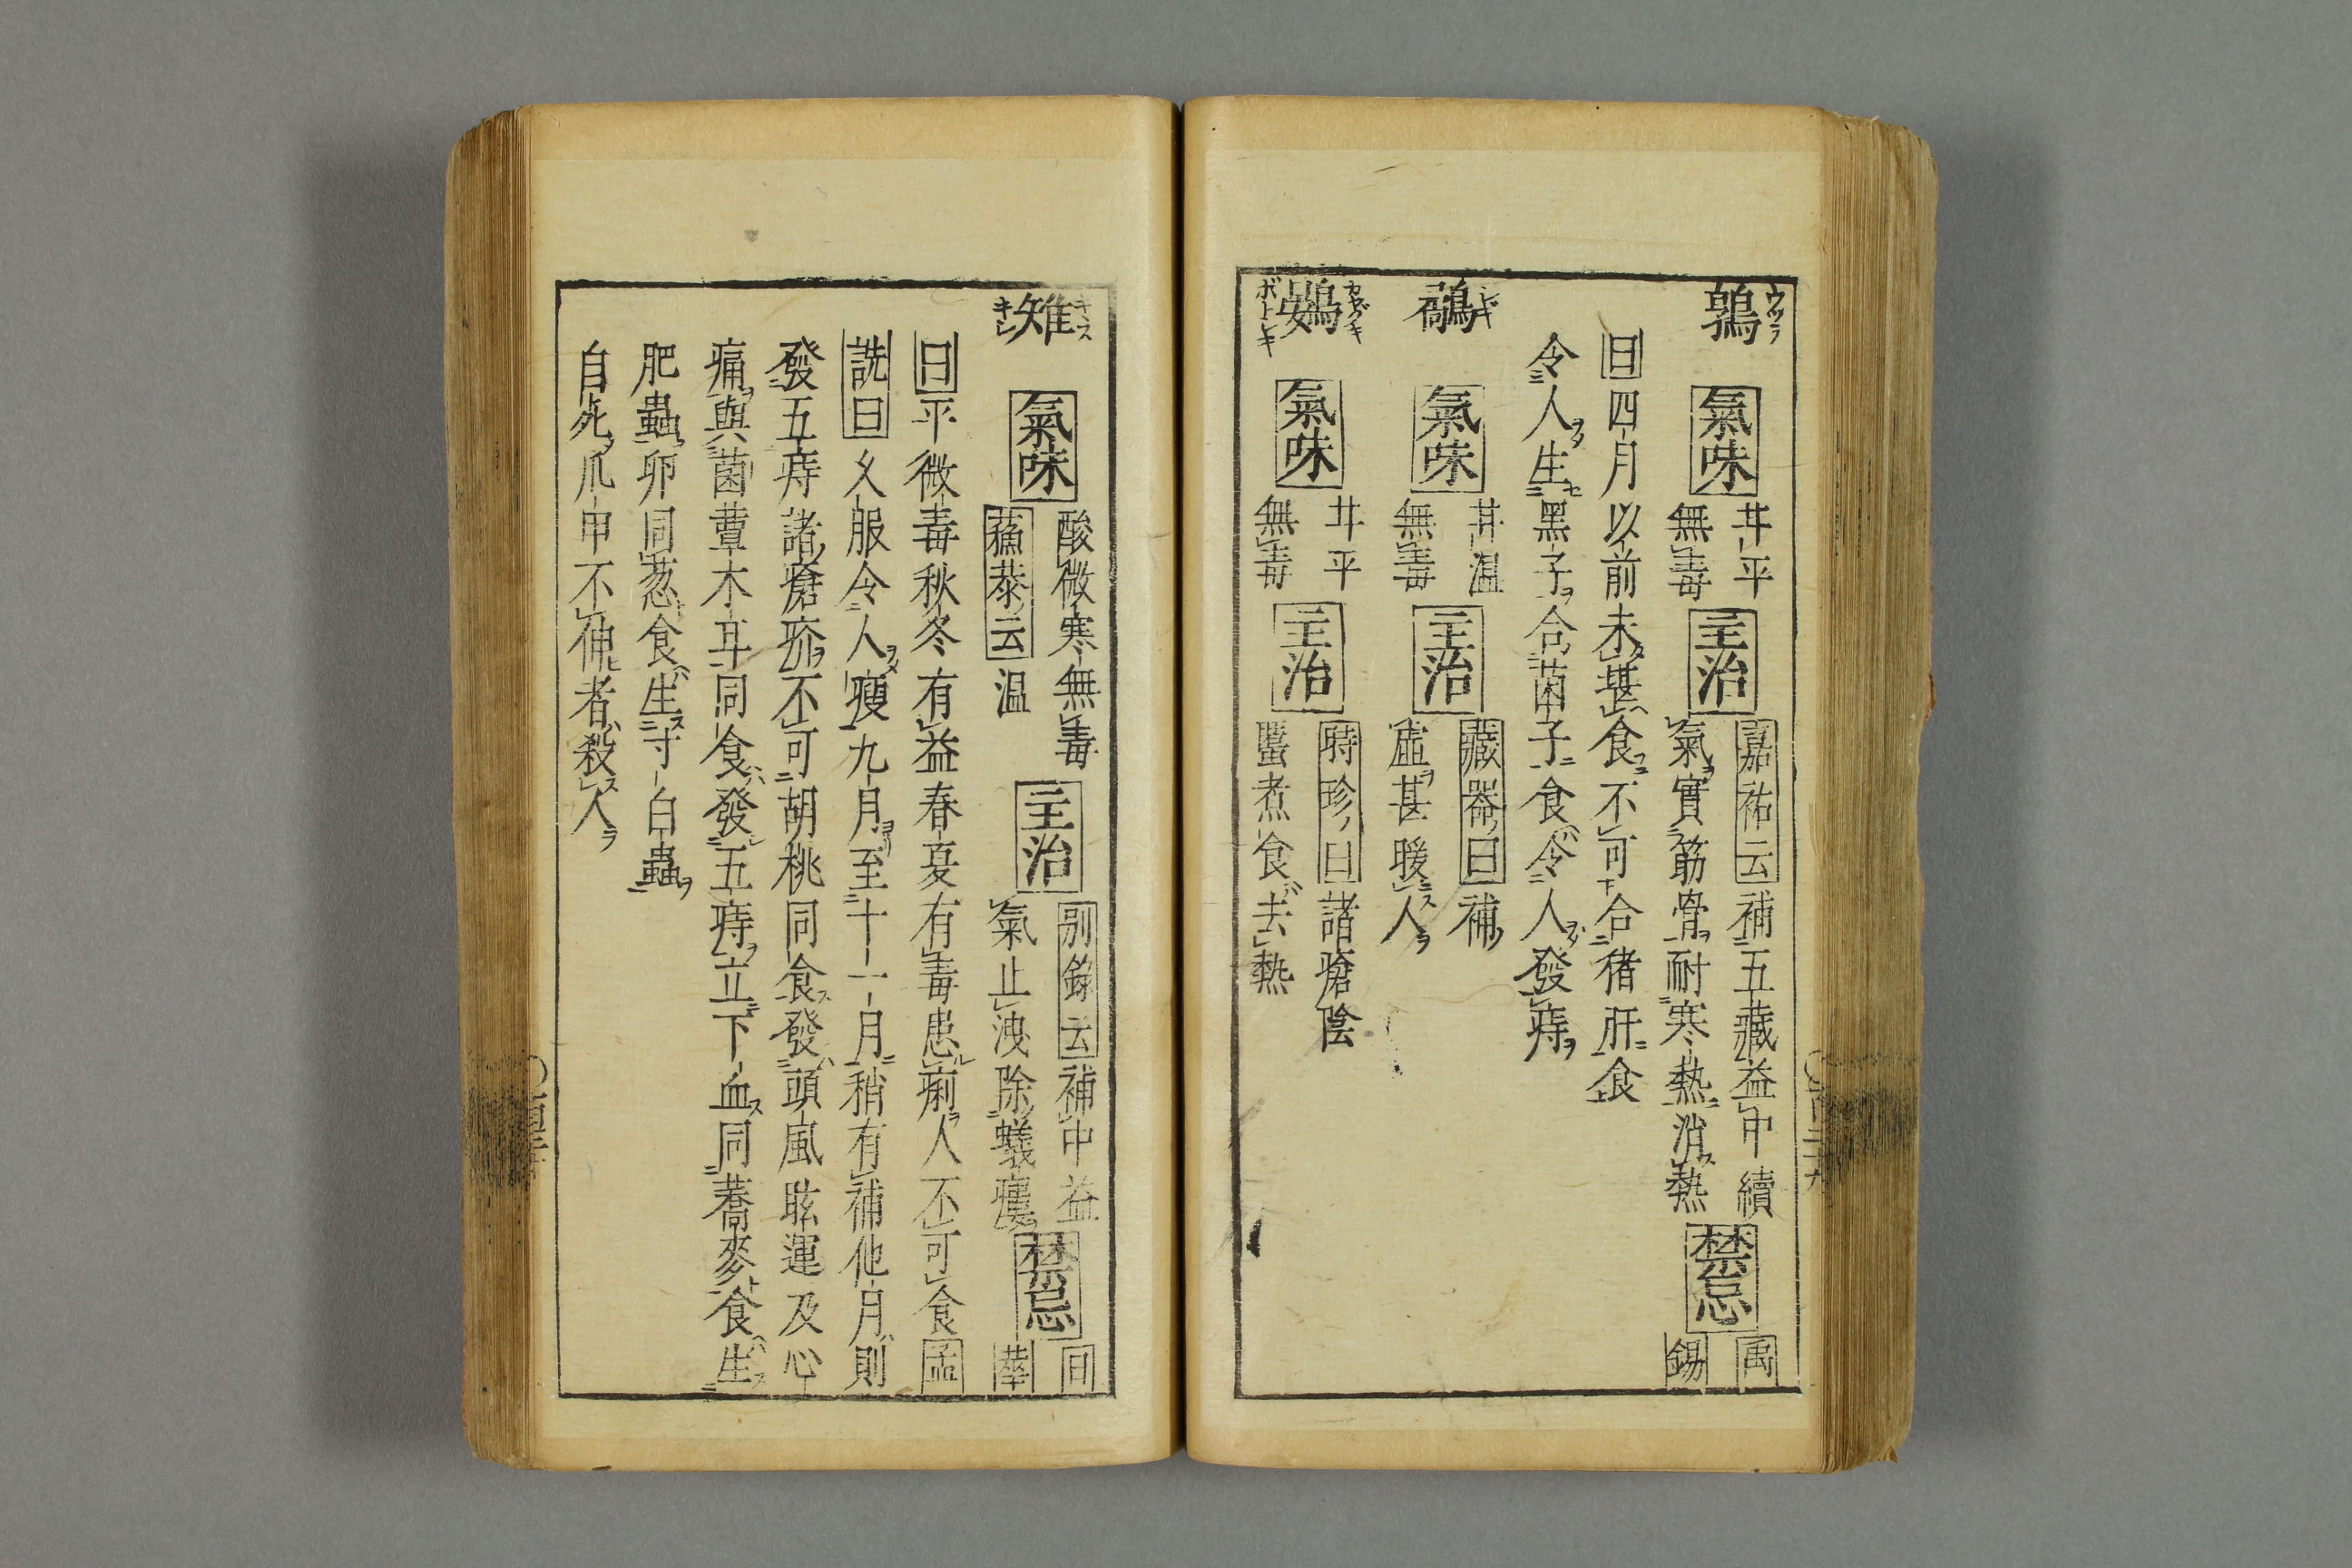 鶉 ウヅラ
氣味 甘平
無毒
主治 嘉祐云補五藏益中續
氣實筋骨耐寒熱消熱
禁忌 禹
錫
曰四月以前未堪食不可合猪肝食
令人生黑子合菌子食令人發痔
鷸 シギ
氣味 甘温
無毒
主治 藏器曰補
虛甚暖人
鷃
氣味 甘平
無毒
主治 時珍曰諸瘡陰
䘌煮食去熱
雉 キジ
氣味 酸微寒無毒
蘇恭云温
主治 別錄云補中益
氣止洩除蟻瘻
禁忌 同
華
曰平微毒秋冬有益春夏有毒患痢人不可食孟
詵曰久服令人瘦九月至十一月稍有補他月則
發五痔諸瘡疥不可胡桃同食發頭風眩運及心
痛與菌蕈木耳同食發五痔立下血同蕎麥食生
肥蟲卵同葱食生寸白蟲
自死爪甲不伸者殺人